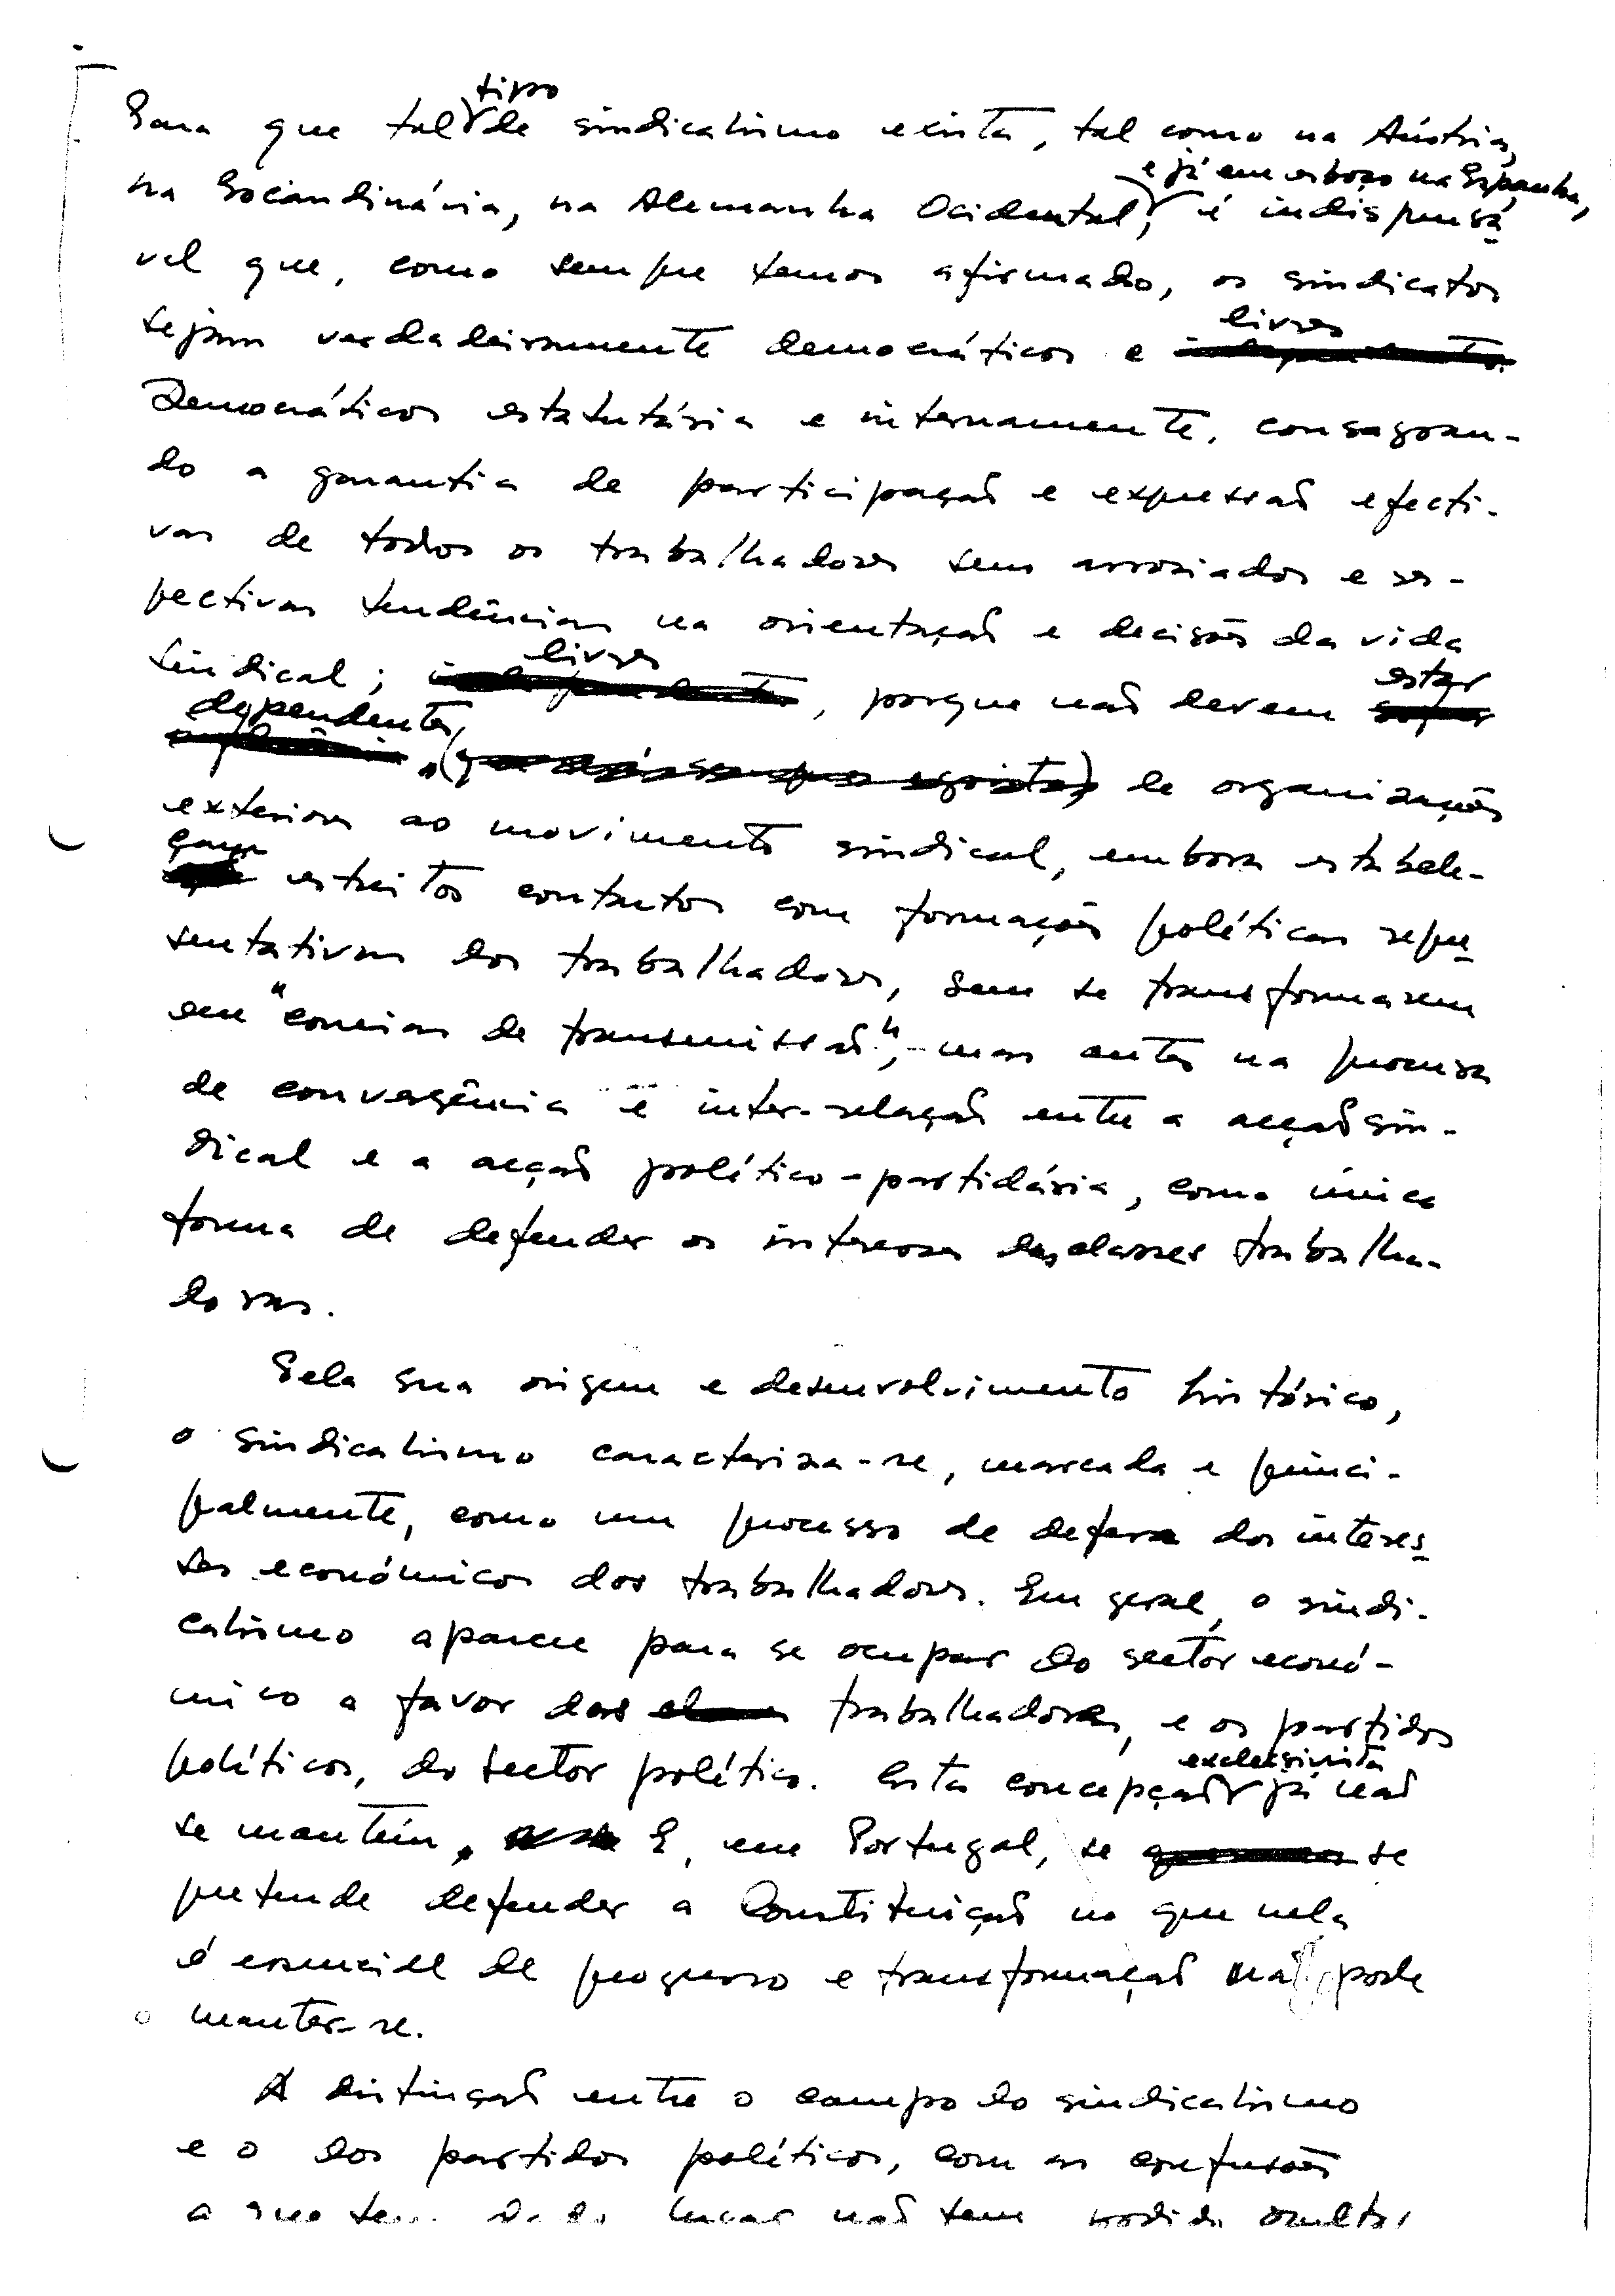 Para que tal tipo de sindicalismo exista, tal como na Áustria,
e já em esboço na Espanha,
na Escandinávia, na Alemanha Ocidental, é indispensá
vel que, como sempre temos afirmado, os sindicatos
sejam verdadeiramente democráticos e livres
Democráticos estatutária e internamente, consagran-
do a garantia de participação e expressão efecti-
vas de todos os trabalhadores seus associados e res-
pectivas tendências na orientação e decisões da vida
sindical; livres, porque não devem estar
dependentes, de organizações
exteriores ao movimento sindical, embora estabele-
çam estreitos contactos com formações políticas repre
sentativas dos trabalhadores, sem se transformarem
em "correias de transmissão", mas antes na procura
de convergência e inter-relação entre a acção sin-
dical e a acção político-partidária, como única
forma de defender os interesses das classes trabalha-
doras.
Pela sua origem e desenvolvimento histórico,
o sindicalismo caracteriza-se, marcada e princi-
palmente, como um processo de defesa dos interes
ses económicos dos trabalhadores. Em geral, o sindi-
calismo aparece para se ocupar do sector econó-
mico a favor dos trabalhadores, e os partidos
políticos, do sector político. Esta concepção exclusivista já não
se mantém. E, em Portugal, se se
pretende defender a Constituição no que nela
é essencial de progresso e transformação não pode
manter-se.
A distinção entre o campo do sindicalismo
e o dos partidos políticos, com as confusões
a que tem dado lugar não tem podido ocultar